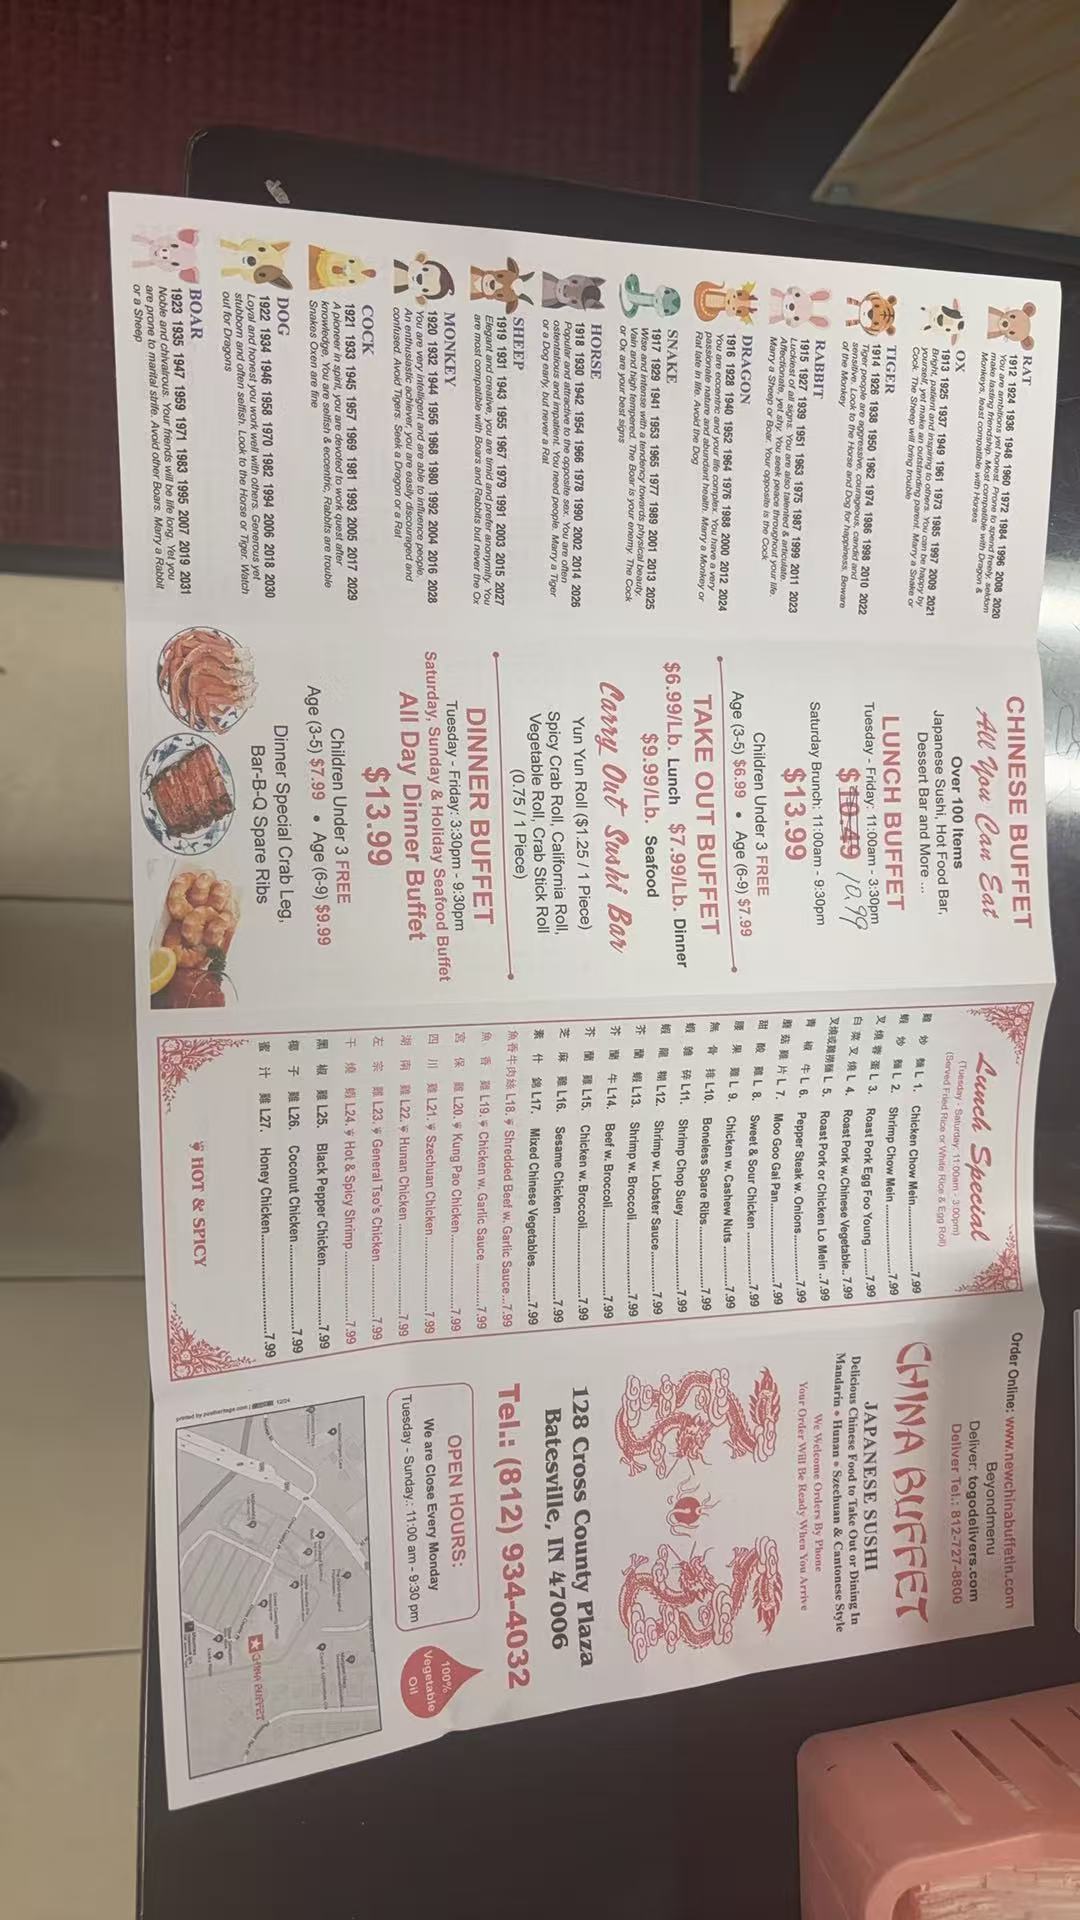 RAT
1912 1924 1936 1948 1960 1972 1984 1996 2008 2020
You are ambitious yet honest. Prone to spend freely, seldom
make lasting friendship. Most compatible with Dragon &
Monkeys, least compatible with Horses
OX
1913 1925 1937 1949 1961 1973 1985 1997 2009 2021
Bright, patient and inspiring to others. You can be happy by
yourself, yet make an outstanding parent. Marry a Snake or
Cock. The Sheep will bring trouble
TIGER
1914 1926 1938 1950 1962 1974 1986 1998 2010 2022
Tiger people are aggressive, courageous, candid and
sensitive. Look to the Horse and Dog for happiness, Beware
of the Monkey
RABBIT
1915 1927 1939 1951 1963 1975 1987 1999 2011 2023
Luckiest of all signs. You are also talented & articulate.
Affectionate, yet shy. You seek peace throughout your life.
Marry a Sheep or Boar. Your opposite is the Cock
DRAGON
1916 1928 1940 1952 1964 1976 1988 2000 2012 2024
You are eccentric and your life complex. You have a very
passionate nature and abundant health. Marry a Monkey or
Rat late in life. Avoid the Dog
SNAKE
1917 1929 1941 1953 1965 1977 1989 2001 2013 2025
Wise and intense with a tendency towards physical beauty.
Vain and high tempered. The Boar is your enemy. The Cock
or Ox are your best signs
HORSE
1918 1930 1942 1954 1966 1978 1990 2002 2014 2026
Popular and attractive to the opposite sex. You are often
ostentatious and impatient. You need people. Marry a Tiger
or a Dog early, but never a Rat
SHEEP
1919 1931 1943 1955 1967 1979 1991 2003 2015 2027
Elegant and creative, you are timid and prefer anonymity. You
are most compatible with Boars and Rabbits but never the Ox
MONKEY
1920 1932 1944 1956 1968 1980 1992 2004 2016 2028
You are very intelligent and are able to influence people.
An enthusiastic achiever, you are easily discouraged and
confused. Avoid Tigers. Seek a Dragon or a Rat
COCK
1921 1933 1945 1957 1969 1981 1993 2005 2017 2029
A pioneer in spirit, you are devoted to work quest after
knowledge. You are selfish & eccentric. Rabbits are trouble
Snakes Oxen are fine
DOG
1922 1934 1946 1958 1970 1982 1994 2006 2018 2030
Loyal and honest you work well with others. Generous yet
stubborn and often selfish. Look to the Horse or Tiger. Watch
out for Dragons
BOAR
1923 1935 1947 1959 1971 1983 1995 2007 2019 2031
Noble and chivalrous. Your friends will be life long. Yet you
are prone to marital strife. Avoid other Boars. Marry a Rabbit
or a Sheep
CHINESE BUFFET
All You Can Eat
Over 100 Items
Japanese Sushi, Hot Food Bar,
Dessert Bar and More ...
LUNCH BUFFET
Tuesday - Friday: 11:00am - 3:30pm
$10.49 10.99
Saturday Brunch: 11:00am - 9:30pm
$13.99
Children Under 3 FREE
Age (3-5) $6.99 • Age (6-9) $7.99
TAKE OUT BUFFET
$6.99/Lb. Lunch $7.99/Lb. Dinner
$9.99/Lb. Seafood
Carry Out Sushi Bar
Yun Yun Roll ($1.25 / 1 Piece)
Spicy Crab Roll, California Roll,
Vegetable Roll, Crab Stick Roll
(0.75 / 1 Piece)
DINNER BUFFET
Tuesday - Friday: 3:30pm - 9:30pm
Saturday, Sunday & Holiday Seafood Buffet
All Day Dinner Buffet
$13.99
Children Under 3 FREE
Age (3-5) $7.99 • Age (6-9) $9.99
Dinner Special Crab Leg,
Bar-B-Q Spare Ribs
Lunch Special
(Tuesday - Saturday: 11:00am - 3:00pm)
(Served Fried Rice or White Rice & Egg Roll)
雞 炒 麵 L 1. Chicken Chow Mein..........7.99
蝦 炒 麵 L 2. Shrimp Chow Mein ..........7.99
叉 燒 蓉 蛋 L 3. Roast Pork Egg Foo Young ......7.99
白 菜 叉 燒 L 4. Roast Pork w.Chinese Vegetable..7.99
叉燒或雞撈麵 L 5. Roast Pork or Chicken Lo Mein ..7.99
青 椒 牛 L 6. Pepper Steak w. Onions..........7.99
蘑 菇 雞 片 L 7. Moo Goo Gai Pan..........7.99
甜 酸 雞 L 8. Sweet & Sour Chicken ..........7.99
腰 果 雞 L 9. Chicken w. Cashew Nuts ........7.99
無 骨 排 L10. Boneless Spare Ribs..........7.99
蝦 雜 碎 L11. Shrimp Chop Suey ..........7.99
蝦 龍 糊 L12. Shrimp w. Lobster Sauce........7.99
芥 蘭 蝦 L13. Shrimp w. Broccoli..........7.99
芥 蘭 牛 L14. Beef w. Broccoli..........7.99
芥 蘭 雞 L15. Chicken w. Broccoli..........7.99
芝 麻 雞 L16. Sesame Chicken..........7.99
素 什 錦 L17. Mixed Chinese Vegetables........7.99
魚香牛肉絲 L18. Shredded Beef w. Garlic Sauce ...7.99
魚 香 雞 L19. Chicken w. Garlic Sauce ..........7.99
宮 保 雞 L20. Kung Pao Chicken..........7.99
四 川 雞 L21. Szechuan Chicken..........7.99
湖 南 雞 L22. Hunan Chicken ..........7.99
左 宗 雞 L23. General Tso's Chicken ..........7.99
干 燒 蝦 L24. Hot & Spicy Shrimp..........7.99
黑 椒 雞 L25. Black Pepper Chicken..........7.99
椰 子 雞 L26. Coconut Chicken ..........7.99
蜜 汁 雞 L27. Honey Chicken..........7.99
HOT & SPICY
Order Online: www.newchinabuffetin.com
Beyondmenu
Deliver: togodelivers.com
Deliver Tel.: 812-727-8800
CHINA BUFFET
JAPANESE SUSHI
Delicious Chinese Food to Take Out or Dining In
Mandarin • Hunan • Szechuan & Cantonese Style
We Welcome Orders By Phone
Your Order Will Be Ready When You Arrive
128 Cross County Plaza
Batesville, IN 47006
Tel.: (812) 934-4032
OPEN HOURS:
We are Close Every Monday
Tuesday - Sunday:. 11:00 am - 9:30 pm
100%
Vegetable
Oil
12/24
CHINA BUFFET